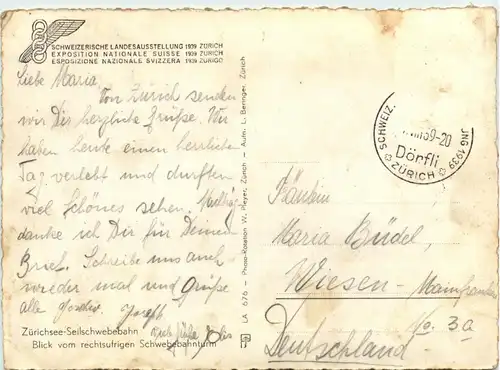 SCHWEIZERISCHE LANDESAUSSTELLUNG 1939 ZÜRICH
EXPOSITION NATIONALE SUISSE 1939 ZURICH
ESPOSIZIONE NAZIONALE SVIZZERA 1939 ZURIGO
Liebe Maria
Von Zürich senden
wir Dir herzliche Grüße. Wir
haben heute einen herrlichen
Tag verlebt und durften
viel Schönes sehen.
danke ich Dir für Deinen
Brief. Schreibe uns auch
wieder mal und Grüße
alle Josef
Zürichsee-Seilschwebebahn
Blick vom rechtsufrigen Schwebebahnturm
LA 676 - Photo-Rotation W. Pleyer, Zürich - Auto. L. Beringer, Zürich
SCHWEIZ. 1939
39-20
Dörfli
ZÜRICH
Fräulein
Maria Büdel,
Wiesen- Mainfranken
No. 3a
Deutschland.